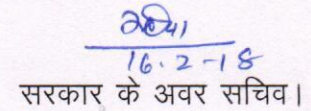 16.2-18
सरकार के अवर सचिव।